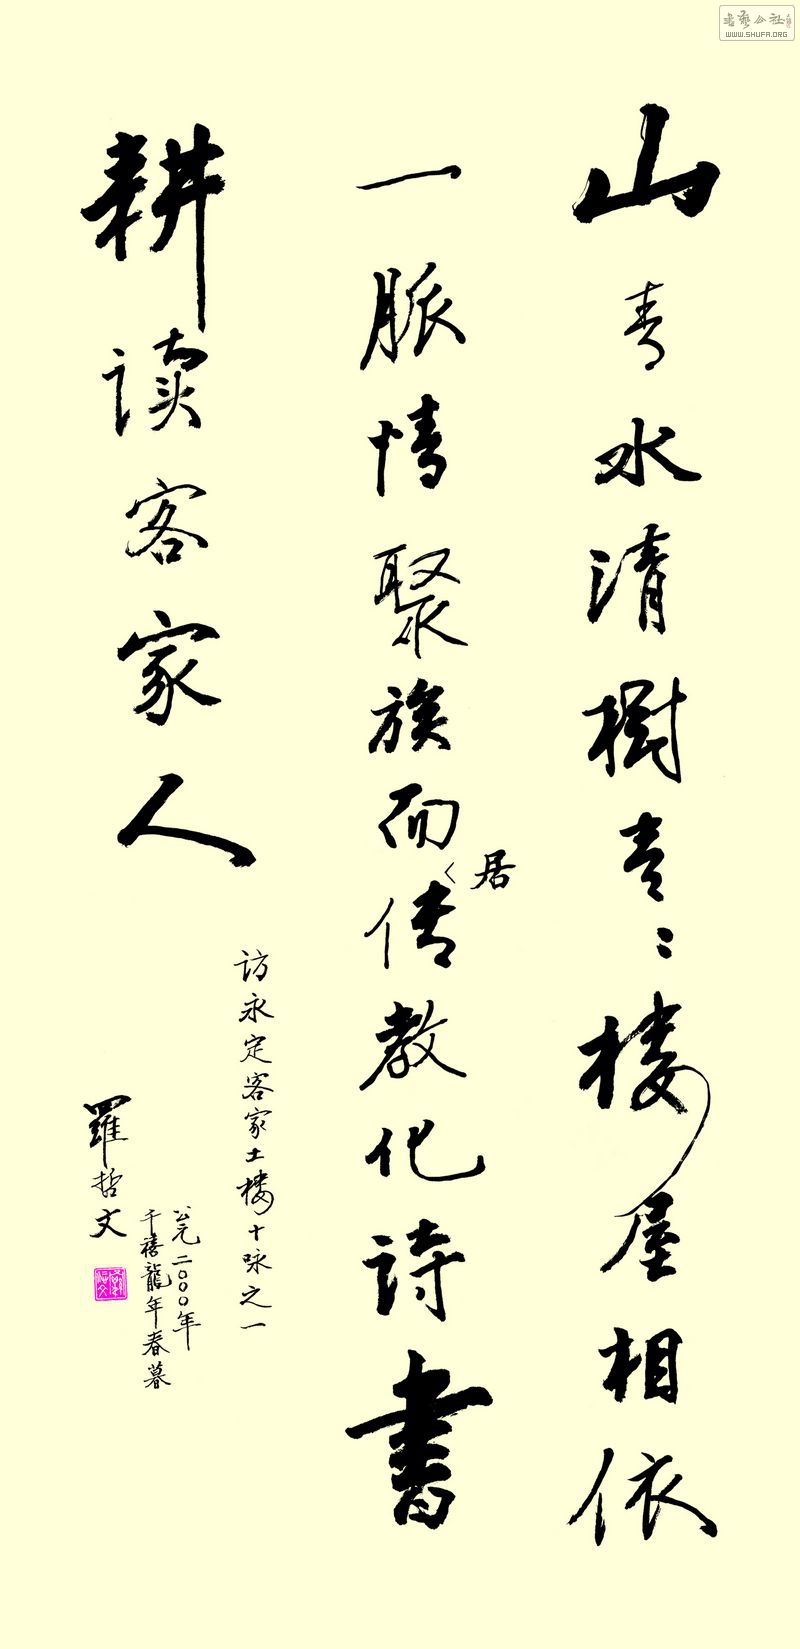 山青水清樹青〻楼屋相依
一脈情聚族而居傳教化詩書
耕读客家人
访永定客家土楼十咏之一
公元二〇〇〇年
千禧龍年春暮
羅哲文
書藝公社
WWW.SHUFA.ORG